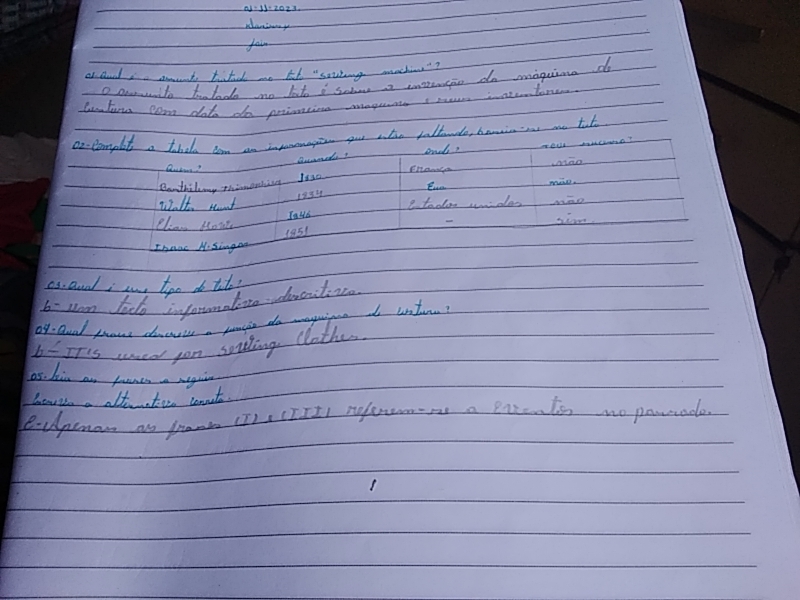 01-11-2023.
01-Qual é o assunto tratado no texto "sewing machine"?
O assunto tratado no texto é sobre a invenção da máquina de
costura com data da primeira maquina e seus inventores.
02-Complete a tabela com as informações que estão faltando, baseia-se no texto
Quem? Quando? onde? teve sucesso?
Barthélemy Thimonnier 1830 França não
Walter Hunt 1834 Eua não.
Elias Howe 1846 Estados unidos não
Isaac M. Singer 1851 - sim.
03-Qual é esse tipo de texto?
b- um texto informativo-descritivo.
04-Qual frase descreve a função da maquina de costura?
b- IT'S used for sewing Clothes.
05-leia as frases a seguir
Escreva a alternativa correta.
E-Apenas as frases (I) e (III) referem-se a Eventos no passado.